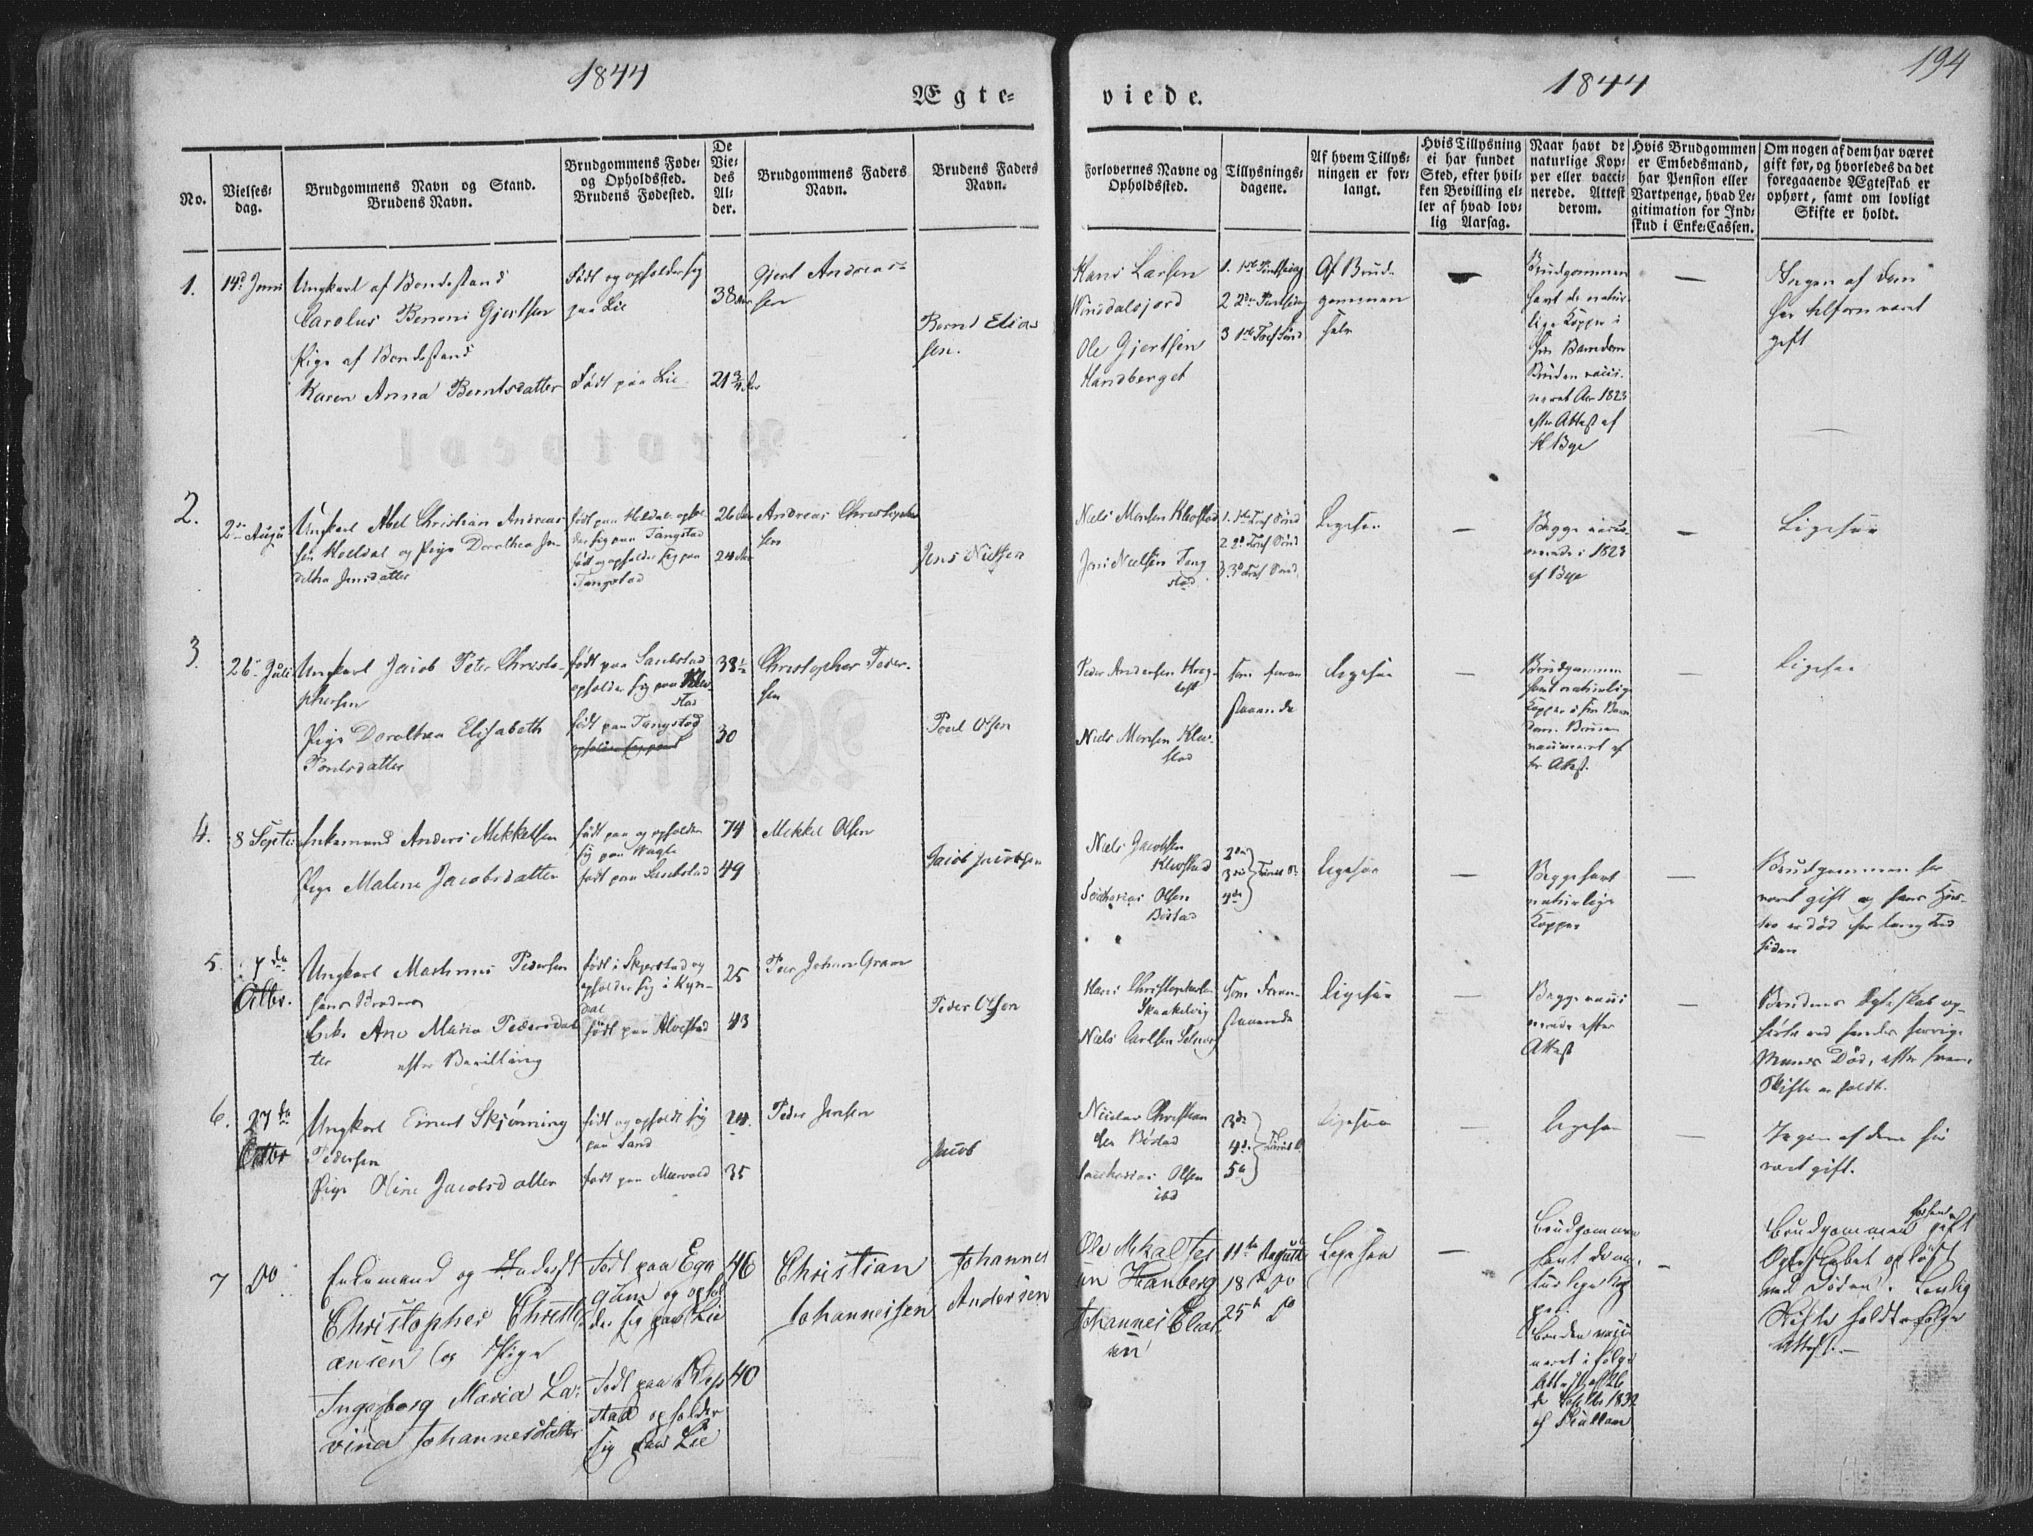 1844
Ægte-
viede.
1844
194
No.
Vielses-
dag.
Brudgommens Navn og Stand.
Brudens Navn.
Brudgommens Føde-
og Opholdssted.
Brudens Fødested.
De
Vie-
des
Al-
der.
Brudgommens Faders
Navn.
Brudens Faders
Navn.
Forlovernes Navne og
Opholdsted.
Tillysnings-
dagene.
Af hvem Tillys-
ningen er for-
langt.
Hvis Tillysning
ei har fundet
Sted, efter hvil-
ken Bevilling el-
ler af hvad lov-
lig Aarsag.
Naar havt de
naturlige Kop-
per eller vacci-
nerede. Attest
derom.
Hvis Brudgommen
er Embedsmand,
har Pension eller
Vartpenge, hvad Le-
gitimation for Ind-
skud i Enke-Cassen.
Om nogen af dem har været
gift før, og hvorledes da det
foregaaende Ægteskab er
ophørt, samt om lovligt
Skifte er holdt.
1.
14d Juni
Ungkarl af Bondestand
Carolus Benoni Gjertsen
Pige af Bondestand
Karen Anna Berntsdatter
Født og opholder sig
paa Lie
Født paa Lie
38 Aar
21 3/4 Aar
Gjert Andreas-
sen
Bernt Elias
sen.
Hans Larsen
Ole Gjertsen
Handberget
1. 1ste Pintsedag
2 2den Pintsedag
3 1ste Tref Sønd
Af Brud-
gommen
selv
Brudgommen
havt de natur-
lige Kopper i
sin Barndom
Bruden vacci-
neret Aar 1823
efter Attest af
H Bye
Ingen af dem
har tilforn været
gift
2.
2den Augu
Ungkarl Abel Christian Andreas
sen Helldal og Pige Dorothea Jen
sertha Jensdatter
født paa Heldal ophol
der sig paa Tangstad
født og opholder sig paa
Tangstad
26 Aar
24 Aar
Andreas Christophe
sen
Jens Nielsen
Niels Monsen Klevstad
Jens Nielsen Tang
stad
1. 1ste Tref Sønd
2 2d Tref Sønd
3. 3d Tref Sønd.
Ligesaa
Begge vacci-
nerede i 1823
af Bye
Ligesaa
3.
26 Juli
Ungkarl Jacob Peter Christo-
phersen
Pige Dorothea Elisabeth
Poulsdatter
født paa Sandstad
opholder sig paa Klev
stad
født paa Tangstad
33 1/2
30
Christopher Peder-
sen
Poul Olsen
Peder Andersen Hag-
Niels Monsen Klev-
stad
som foran
staaende
Ligesaa
Brudgommen
havt naturlige
Kopper i sin Barn
dom. Bruden
vaccineret ef
ter Attest.
Ligesaa
4.
8 Septe
Enkemand Anders Mikkelsen
Pige Malene Jacobsdatter
født paa og opholder
sig paa Vagle
født paa Sandstad
74
49
Mikkel Olsen
Jacob Jacobsen
Niels Jacobsen
Klevstad
Zacharias Olsen
Bøstad
2den
3die
4de
Ligesaa
Begge havt
naturlige
Kopper
Brudgommen har
været gift og hans Hus-
tru er død for lang Tid
siden
5.
7da
Octbr.
Ungkarl Marthinus Pedersen
Enke Ane Maria Pedersdat
ter
efter Bevilling
født i Skjerstad og
opholder sig i Kyn-
dal
født paa Alvestad
25
43
Peer Johan Gram
Peder Olsen
Hans Christophersen
Skaakelvig
Niels Carlsen
som Foran-
staaende
Ligesaa
Begge vacci
nerede efter
Attest
Brudens Egteskab op-
hørte ved hendes forrige
Mands Død, efter hvem
Skifte er holdt.
6.
27da
Octbr
Ungkarl Einert Skjønning
Pedersen
Pige Oline Jacobsdatter
født og opholdt sig
paa Sand
født paa Mærvold
24.
35
Peder Jensen
Jacob
Nicolai Christian
sen Bøstad
Zacharias Olsen
ibd
3de
4de
5te
Ligesaa
Ligesaa
Ingen af dem før
været gift.
7
Do
Enkemand og Inderst
Christopher Christi-
ansen (og Pige
Ingeborg Maria La-
vina Johannesdatter
Født paa Ega
gum og ophol
der sig paa Lie
Født paa Klep
stad opholder
sig paa Lie
46
40
Christian
Johannessen
Johannes
Andersen
Ole Mikal
Hanberg
Johannes Elias
sen
11te August
18de Do
25te Do
Ligesaa
Brudgommen
havt de na-
turlige Kop
per.
Bruden vacci
neret i følge
Attest
1832
Brudgommen gift
Ægteskabet opløst
ved Døden. Lovlig
Skifte holdt i følge
Attest.